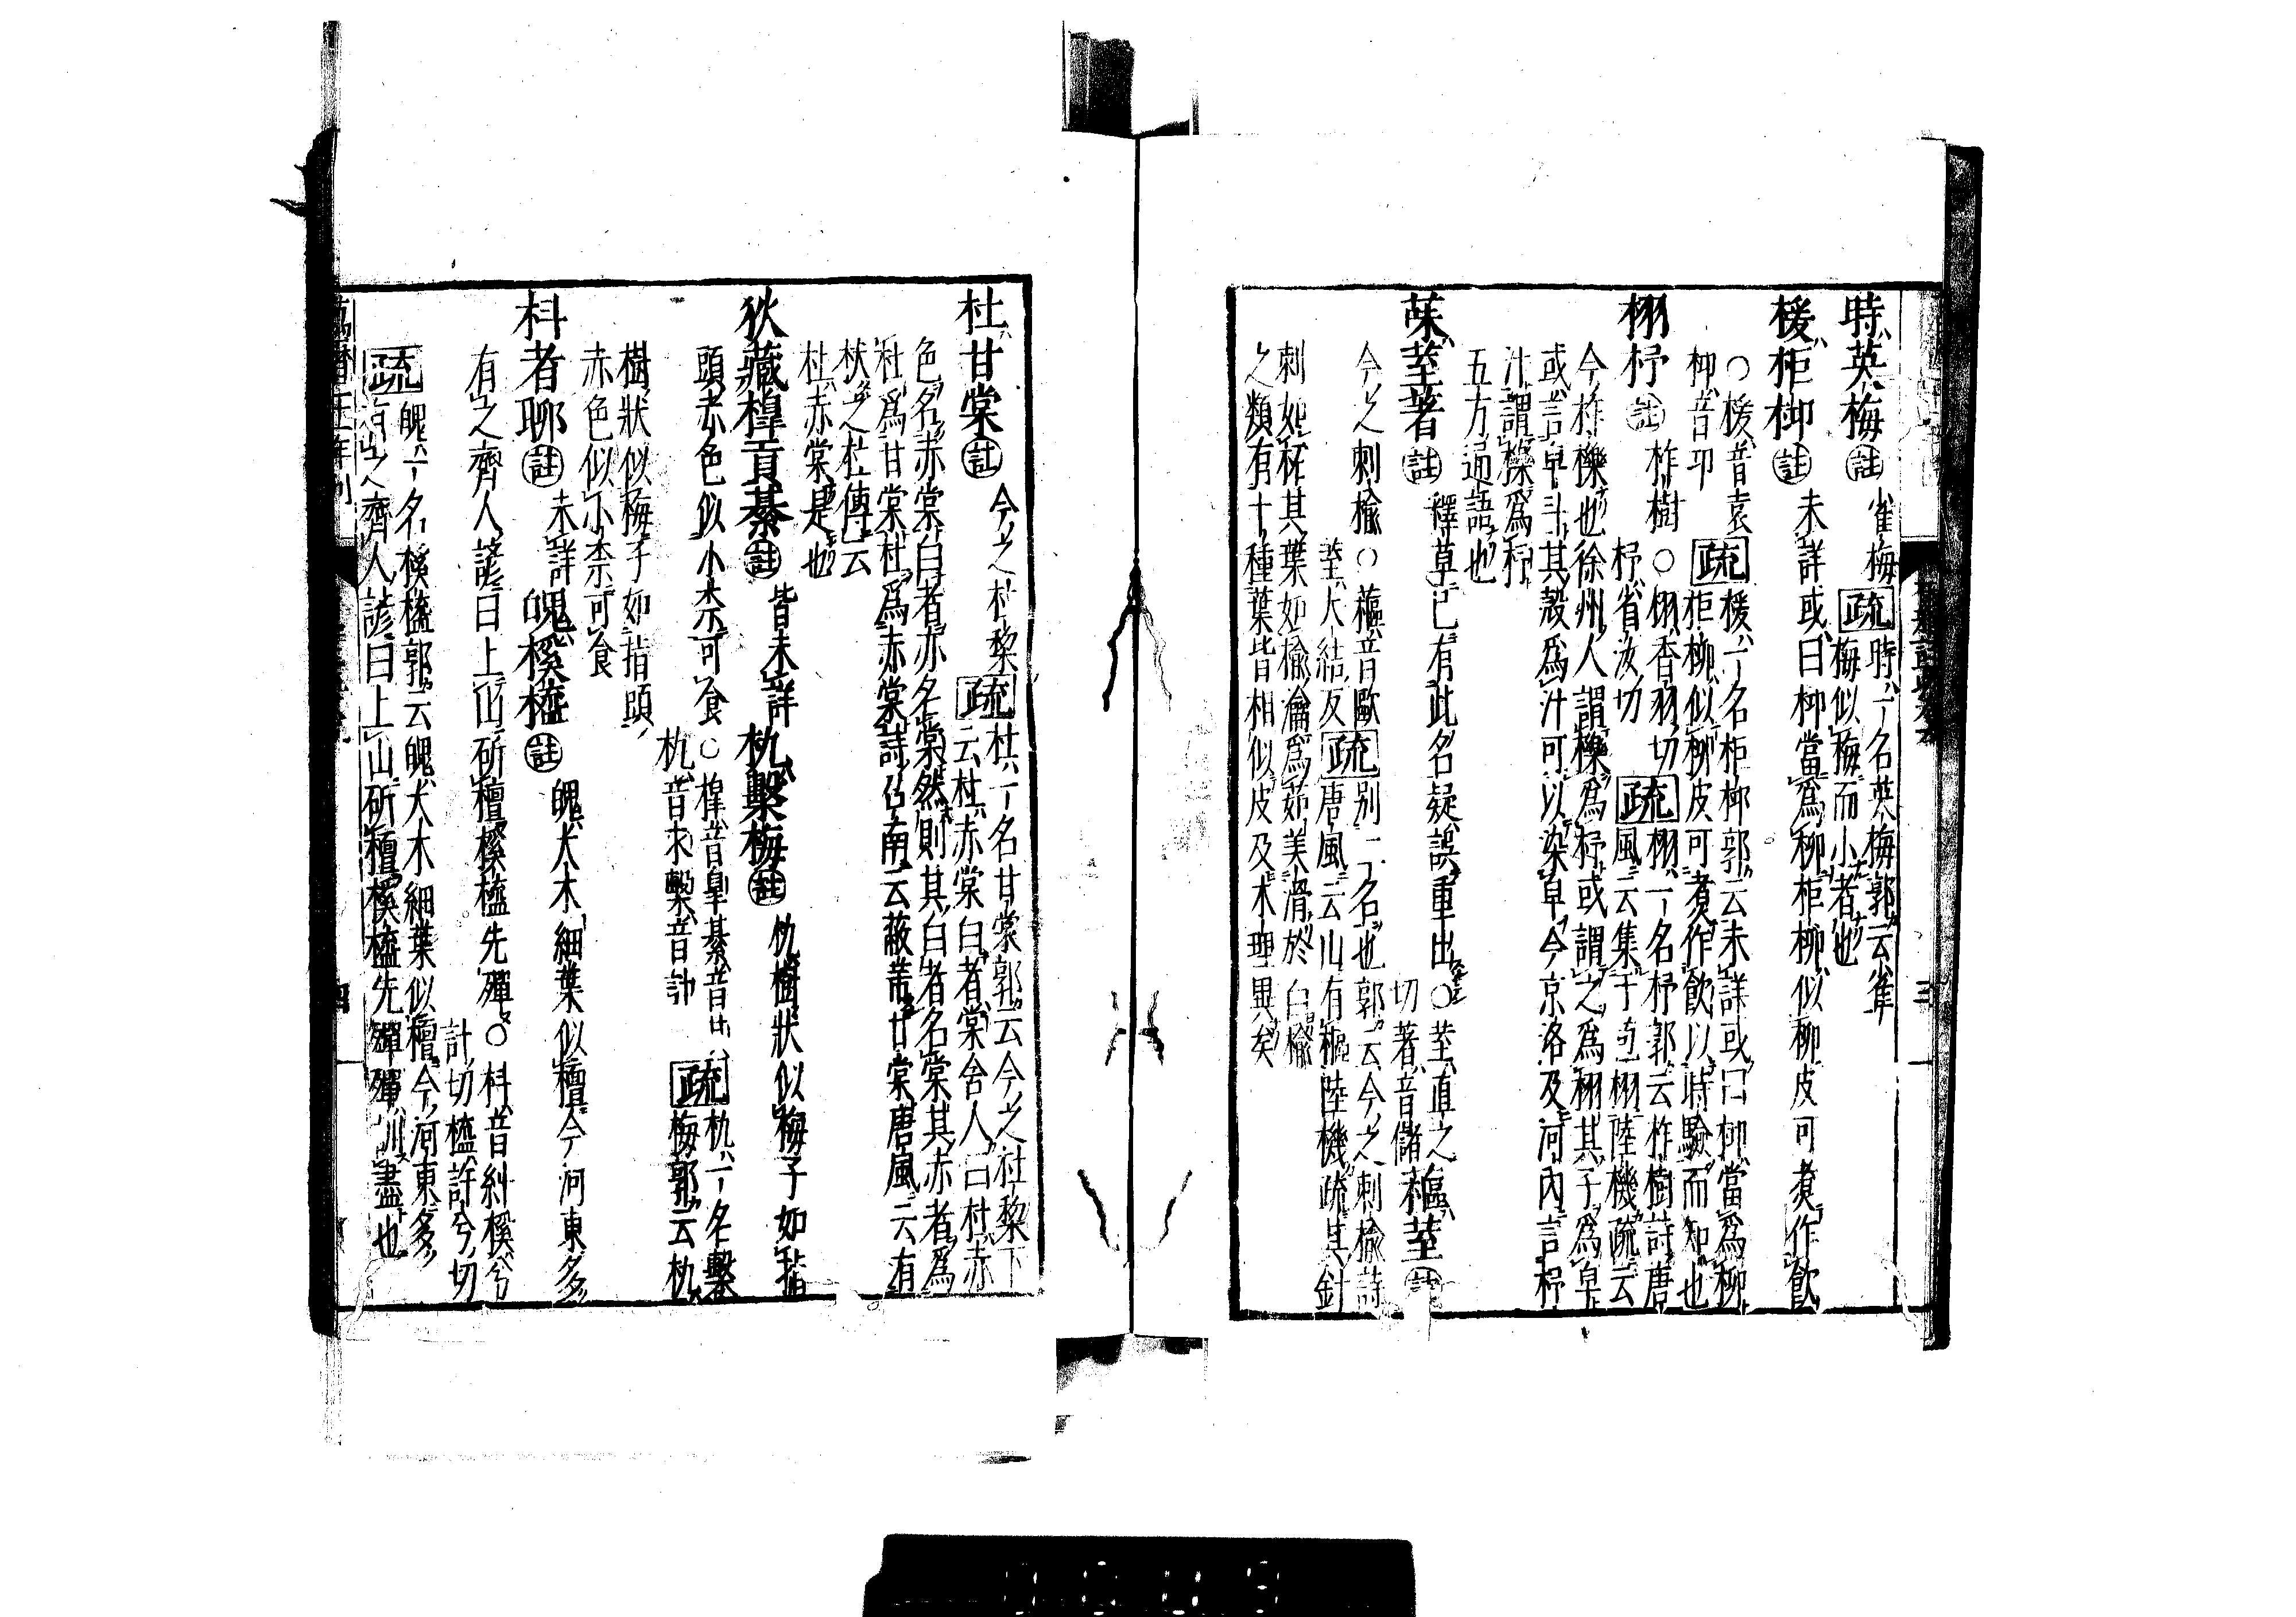 時英梅註雀梅疏時一名英梅郭云雀
梅似梅而小者也
楥柜桺註未詳或曰桺當爲柳柜柳似柳皮可煮作飲
○楥音袁疏楥一名柜桺郭云未詳或曰桺當爲柳
桺音卬柜柳似柳皮可煮作飲以時驗而知也
栩杼註柞樹○栩香羽切疏栩一名杼郭云柞樹詩唐
杼省汝切風云集于苞栩陸機疏云
今柞櫟也徐州人謂櫟爲杼或謂之爲栩其子爲皁
或言皁斗其殼爲汁可以染皁今京洛及河內言杼
汁謂櫟爲杼
五方通語也
莍荎著註釋草已有此名疑誤重出○荎直之
切著音儲
藲荎註
今之刺榆○藲音歐
荎大結反疏別二名也郭云今之刺榆詩
唐風云山有樞陸機疏其針
刺如柘其葉如榆瀹爲茹美滑於白榆
之類有十種葉皆相似皮及木理異矣
杜甘棠註今之杜黎疏杜一名甘棠郭云今之杜黎下
云杜赤棠白者棠舍人曰杜赤
色名赤棠白者亦名棠然則其白者名棠其赤者爲
杜爲甘棠杜爲赤棠詩召南云蔽芾甘棠唐風云有
杕之杜傳云
杜赤棠是也
狄藏槔貢綦註皆未詳
朹檕梅註朹樹狀似梅子如指
頭赤色似小柰可食○槔音皐綦音甘
朹音求檕音計疏朹一名檕
梅郭云朹
樹狀似梅子如指頭
赤色似小柰可食
朻者聊註未詳
魄榽橀註魄大木細葉似檀今河東多
有之齊人諺曰上山斫檀榽橀先殫○朻音糾榽兮
計切橀許兮切
疏魄一名榽橀郭云魄大木細葉似檀今河東多
有之齊人諺曰上山斫檀榽橀先殫殫訓盡也